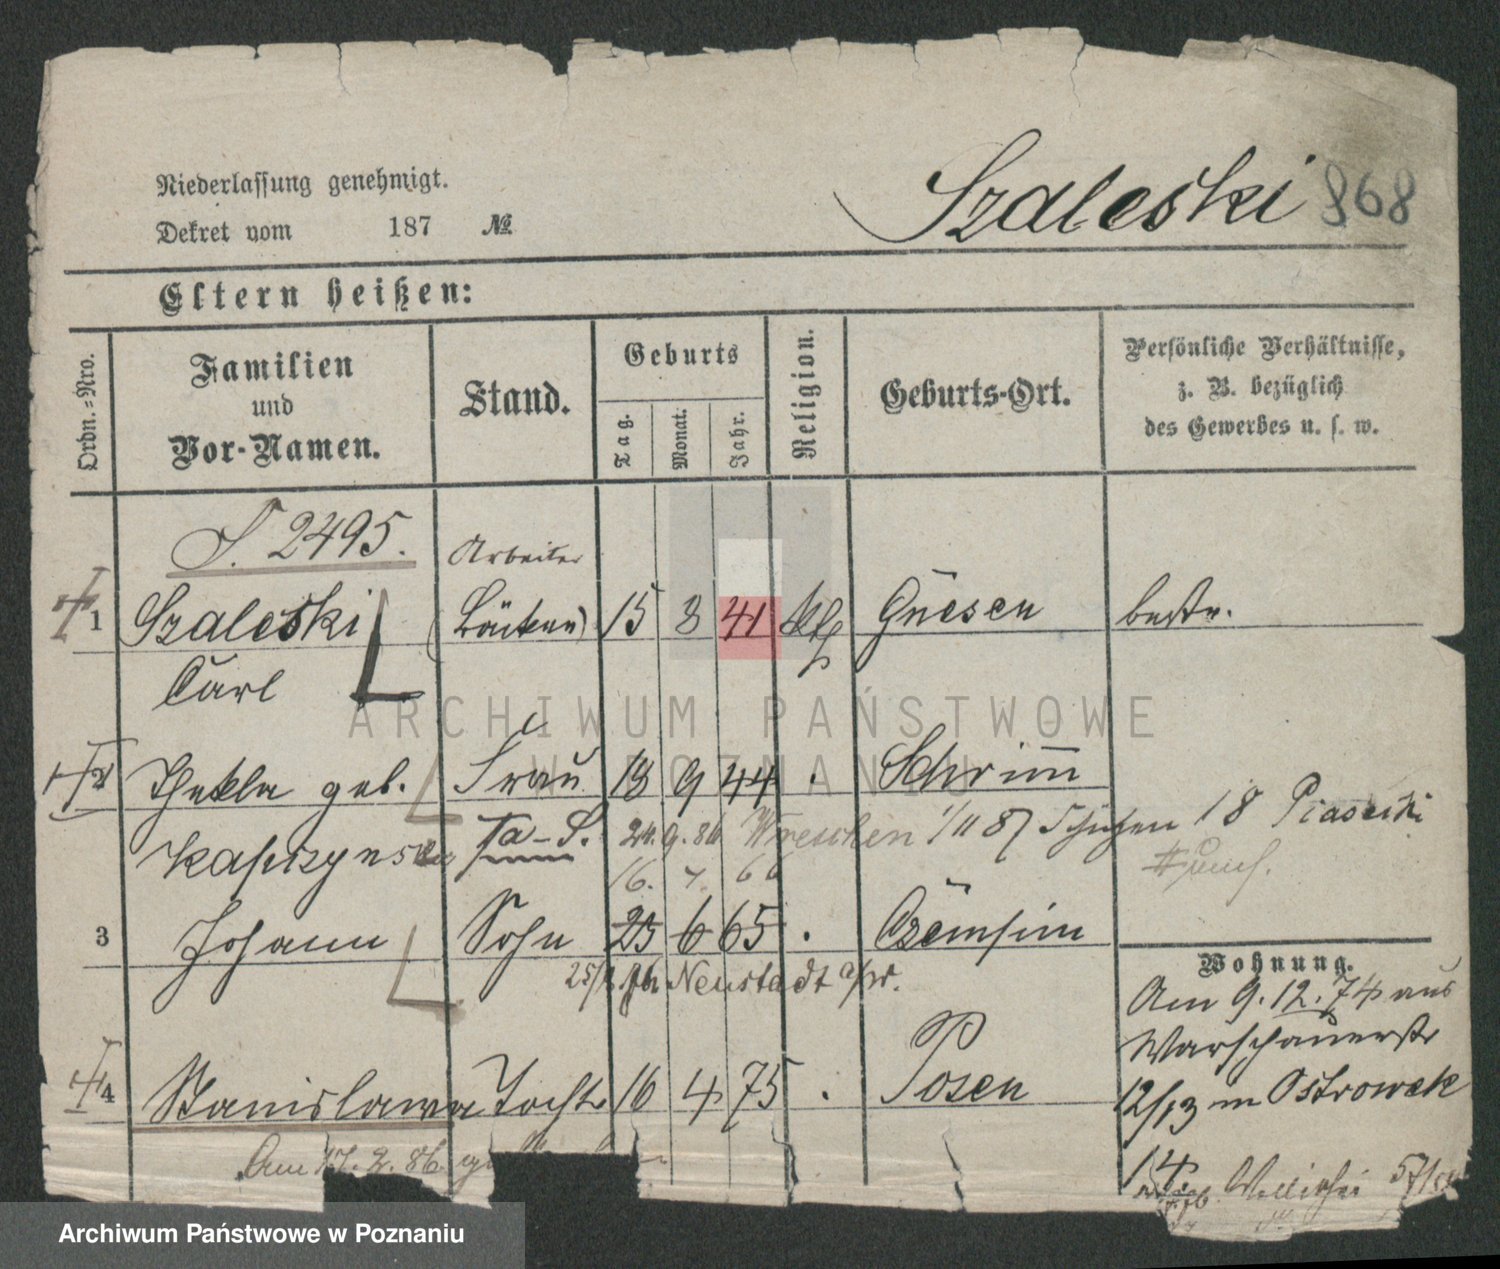 Niederlassung genehmigt.
Dekret vom 187 №
Szaleski 868
Eltern heißen:
Ordn.=Nro.
Familien und Vor-Namen.
Stand.
Geburts
Tag. Monat. Jahr.
Religion.
Geburts-Ort.
Persönliche Verhältnisse,
z. B. bezüglich
des Gewerbes u. s. w.
2495.
Arbeiter
1 Szaleski 15 8 41 Kth Gnesen bestr.
Carl
2 Thekla geb. Frau 18 9 44 Schrimm
24. 9. 86 Wreschen 1/11 87 18 Piasecki
16. 7. 66
3 Johann Sohn 25 6 65
Neustadt a/W.
Wohnung.
Am 9. 12. 74 aus
Warschauerstr
12/13 n Ostrowek
14
4 Stanislawa Tocht 16 4 75 Posen
Am 17. 2. 86
ARCHIWUM PAŃSTWOWE
W POZNANIU
Archiwum Państwowe w Poznaniu